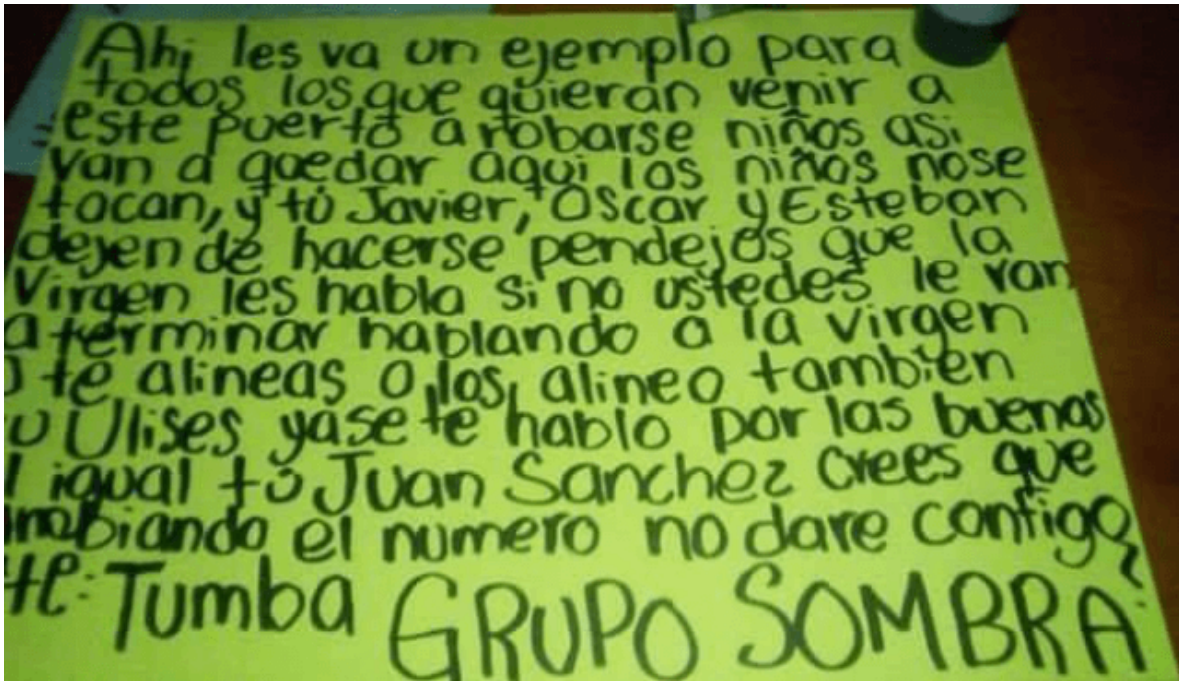 Ahi les va un ejemplo para
todos los que quieran venir a
este puerto a robarse niños asi
van a quedar aqui los niños nose
tocan, y tú Javier, Oscar y Esteban
dejen de hacerse pendejos que la
Virgen les habla si no ustedes le van
a terminar hablando a la virgen
O te alineas o los alineo tambien
u Ulises yase te hablo por las buenas
l igual tú Juan Sanchez crees que
mbiando el numero no dare contigo,
tte: Tumba GRUPO SOMBRA